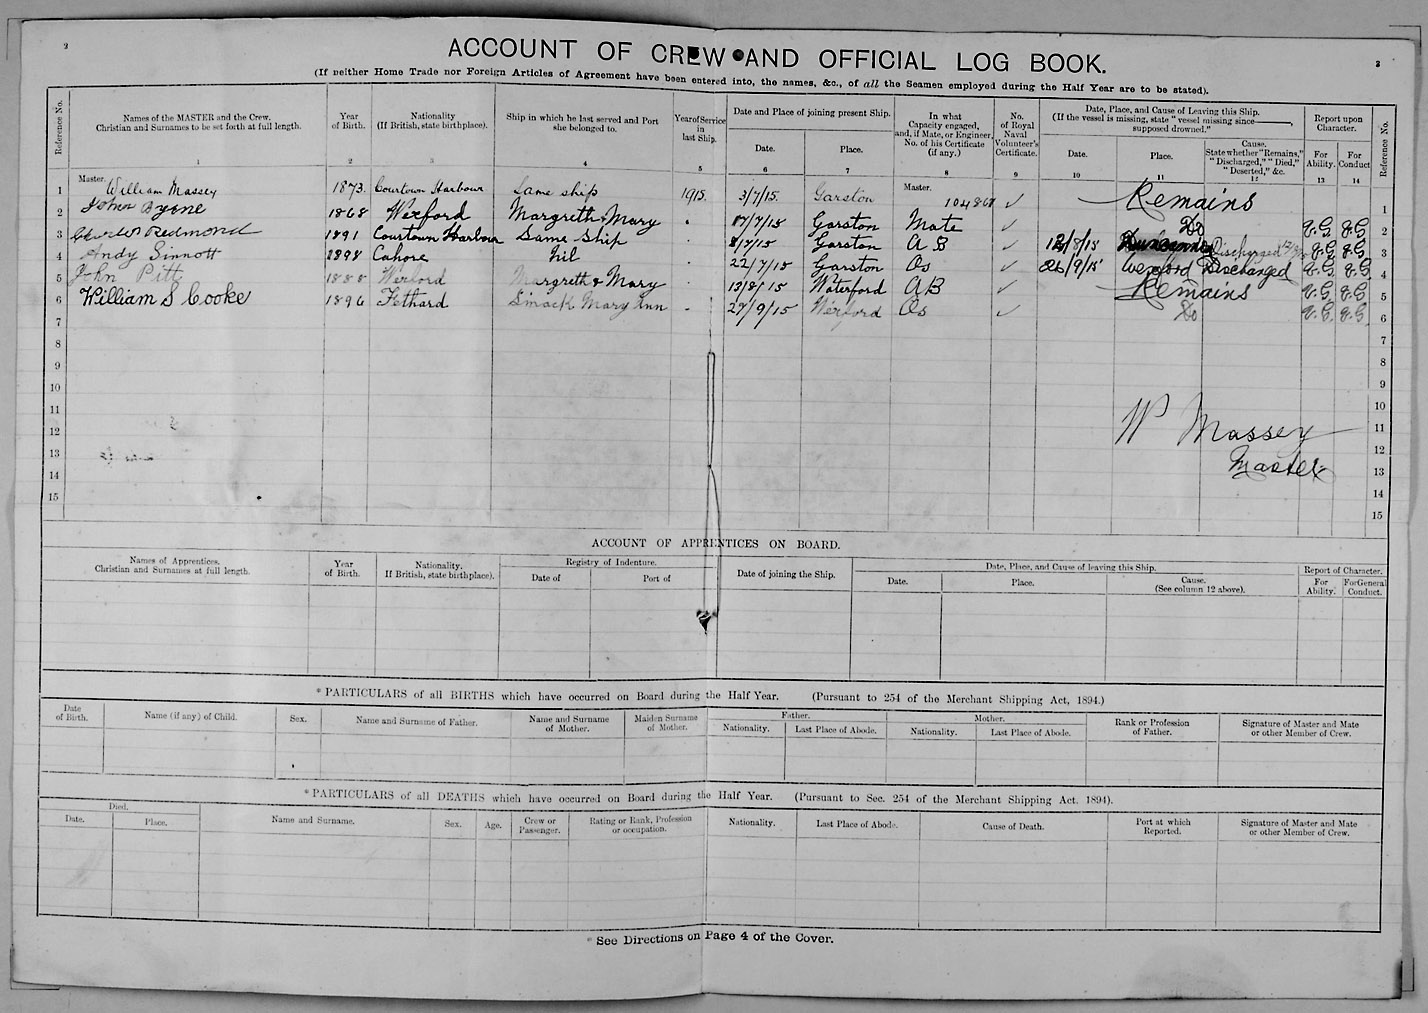 2
ACCOUNT OF CREW AND OFFICIAL LOG BOOK.
3
(If neither Home Trade nor Foreign Articles of Agreement have been entered into, the names, &c., of all the Seamen employed during the Half Year are to be stated).
Reference No. Names of the MASTER and the Crew. Christian and Surnames to be set forth at full length. Year of Birth. Nationality (If British, state birthplace). Ship in which he last served and Port she belonged to. Year of Service in last Ship. Date and Place of joining present Ship. Date. Place. In what Capacity engaged, and, if Mate, or Engineer, No. of his Certificate (if any.) No. of Royal Naval Volunteer's Certificate. Date, Place, and Cause of Leaving this Ship. (If the vessel is missing, state "vessel missing since———, supposed drowned." Date. Place. Cause. State whether "Remains," "Discharged," "Died," "Deserted," &c. Report upon Character. For Ability. For Conduct Reference No.
1 2 3 4 5 6 7 8 9 10 11 12 13 14
1 Master. William Massey 1873. Courtown Harbour Same ship 1915. 3/7/15. Garston Master. 104868 ✓ Remains 1
2 John Byrne 1868 Wexford Margreth & Mary " 17/7/15 Garston Mate ✓ Do V.G. V.G. 2
3 Charles Redmond 1891 Courtown Harbour Same ship " 3/7/15 Garston A B 12/8/15 Duncannon Discharged V.G. V.G. 3
4 Andy Sinnott 1898 Cahore Nil 22/7/15 Garston Os ✓ 26/9/15 Wexford Discharged V.G. V.G. 4
5 John Pitt 1888 Wexford Margreth & Mary " 13/8/15 Waterford AB Remains V.G. V.G. 5
6 William S Cooke 1896 Fethard Smack Mary Ann " 27/9/15 Wexford Os ✓ Do V.G. V.G. 6
7 7
8 8
9 9
10 10
11 W Massey 11
12 12
13 Master 13
14 14
15 15
ACCOUNT OF APPRENTICES ON BOARD.
Names of Apprentices. Christian and Surnames at full length. Year of Birth. Nationality. If British, state birthplace). Registry of Indenture. Date of Port of Date of joining the Ship. Date, Place, and Cause of leaving this Ship. Date. Place. Cause. (See column 12 above). Report of Character. For Ability. For General Conduct.
* PARTICULARS of all BIRTHS which have occurred on Board during the Half Year. (Pursuant to 254 of the Merchant Shipping Act, 1894.)
Date of Birth. Name (if any) of Child. Sex. Name and Surname of Father. Name and Surname of Mother. Maiden Surname of Mother. Father. Nationality. Last Place of Abode. Mother. Nationality. Last Place of Abode. Rank or Profession of Father. Signature of Master and Mate or other Member of Crew.
* PARTICULARS of all DEATHS which have occurred on Board during the Half Year. (Pursuant to Sec. 254 of the Merchant Shipping Act. 1894).
Died. Date. Place. Name and Surname. Sex. Age. Crew or Passenger. Rating or Rank, Profession or occupation. Nationality. Last Place of Abode. Cause of Death. Port at which Reported. Signature of Master and Mate or other Member of Crew.
* See Directions on Page 4 of the Cover.